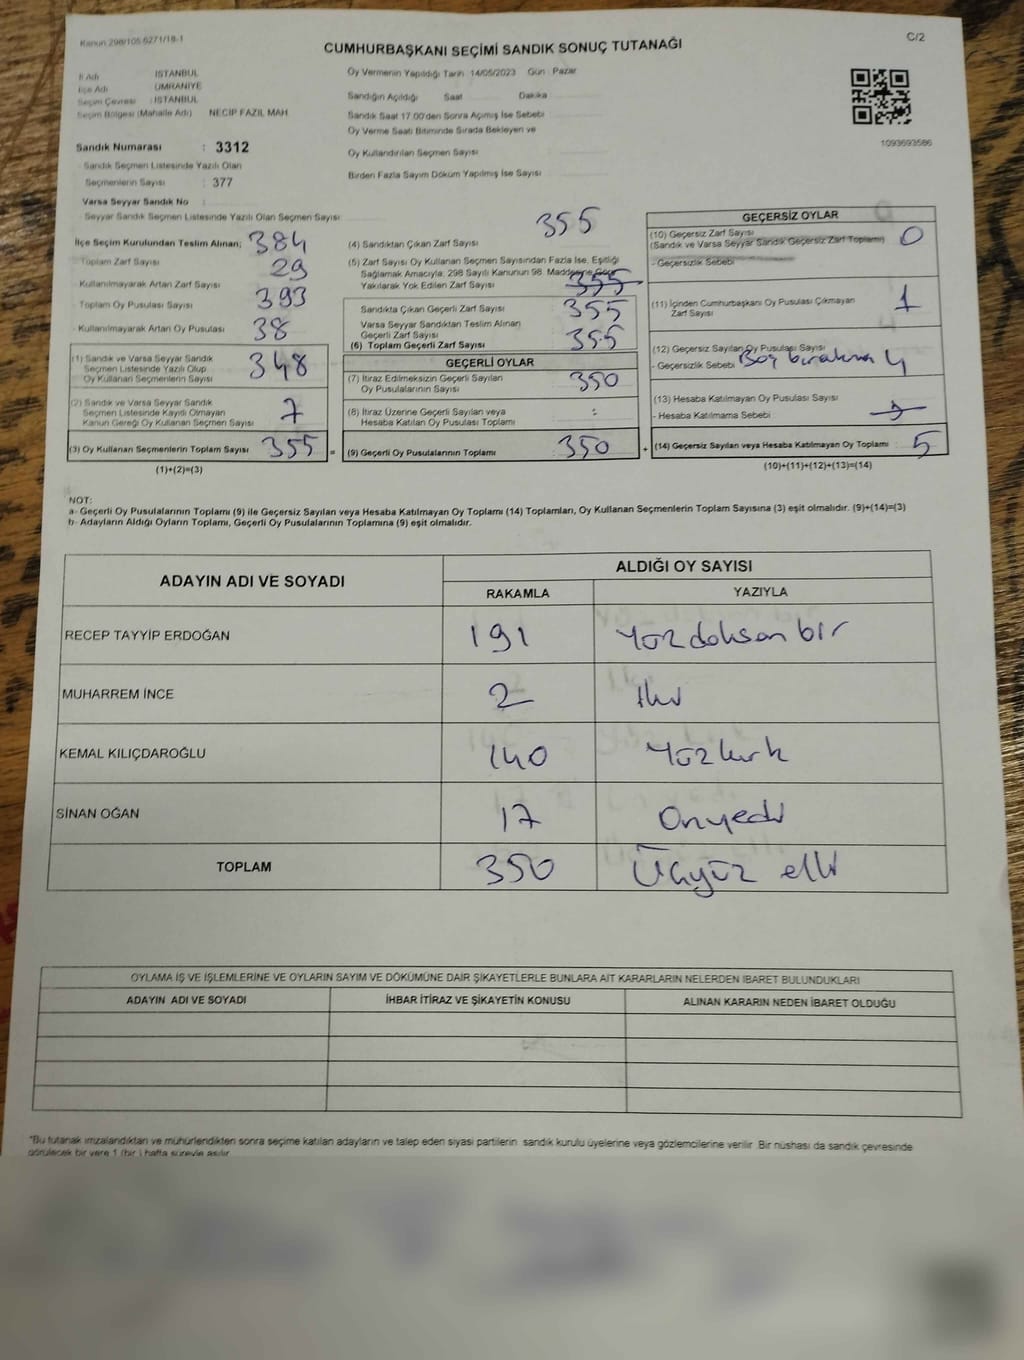 Kanun 298/105 6271/18-1
C/2
CUMHURBAŞKANI SEÇİMİ SANDIK SONUÇ TUTANAĞI
İl Adı İSTANBUL
İlçe Adı ÜMRANİYE
Seçim Çevresi : İSTANBUL
Seçim Bölgesi (Mahalle Adı) NECİP FAZIL MAH.
Sandık Numarası : 3312
Sandık Seçmen Listesinde Yazılı Olan
Seçmenlerin Sayısı : 377
Varsa Seyyar Sandık No :
Seyyar Sandık Seçmen Listesinde Yazılı Olan Seçmen Sayısı
Oy Vermenin Yapıldığı Tarih 14/05/2023 Gün : Pazar
Sandığın Açıldığı Saat Dakika
Sandık Saat 17.00'den Sonra Açımış İse Sebebi
Oy Verme Saati Bitiminde Sırada Bekleyen ve
Oy Kullandırılan Seçmen Sayısı
Birden Fazla Sayım Döküm Yapılmış İse Sayısı
1093693586
İlçe Seçim Kurulundan Teslim Alınan;
Toplam Zarf Sayısı 384
- Kullanılmayarak Artan Zarf Sayısı 29
- Toplam Oy Pusulası Sayısı 393
- Kullanılmayarak Artan Oy Pusulası 38
(1) Sandık ve Varsa Seyyar Sandık
Seçmen Listesinde Yazılı Olup
Oy Kullanan Seçmenlerin Sayısı 348
(2) Sandık ve Varsa Seyyar Sandık
Seçmen Listesinde Kayıtlı Olmayan
Kanun Gereği Oy Kullanan Seçmen Sayısı 7
(3) Oy Kullanan Seçmenlerin Toplam Sayısı 355 =
(1)+(2)=(3)
(4) Sandıktan Çıkan Zarf Sayısı 355
(5) Zarf Sayısı Oy Kullanan Seçmen Sayısından Fazla İse, Eşitliği
Sağlamak Amacıyla; 298 Sayılı Kanunun 98. Maddesine Göre
Yakılarak Yok Edilen Zarf Sayısı 355
Sandıkta Çıkan Geçerli Zarf Sayısı 355
Varsa Seyyar Sandıktan Teslim Alınan
Geçerli Zarf Sayısı
(6) Toplam Geçerli Zarf Sayısı 355
GEÇERLİ OYLAR
(7) İtiraz Edilmeksizin Geçerli Sayılan
Oy Pusulalarının Sayısı 350
(8) İtiraz Üzerine Geçerli Sayılan veya
Hesaba Katılan Oy Pusulası Toplamı :
(9) Geçerli Oy Pusulalarının Toplamı 350 +
GEÇERSİZ OYLAR
(10) Geçersiz Zarf Sayısı
(Sandık ve Varsa Seyyar Sandık Geçersiz Zarf Toplamı) 0
- Geçersizlik Sebebi
(11) İçinden Cumhurbaşkanı Oy Pusulası Çıkmayan
Zarf Sayısı 1
(12) Geçersiz Sayılan Oy Pusulası Sayısı
- Geçersizlik Sebebi Boş bırakma 4
(13) Hesaba Katılmayan Oy Pusulası Sayısı
- Hesaba Katılmama Sebebi
(14) Geçersiz Sayılan veya Hesaba Katılmayan Oy Toplamı : 5
(10)+(11)+(12)+(13)=(14)
NOT:
a- Geçerli Oy Pusulalarının Toplamı (9) ile Geçersiz Sayılan veya Hesaba Katılmayan Oy Toplamı (14) Toplamları, Oy Kullanan Seçmenlerin Toplam Sayısına (3) eşit olmalıdır. (9)+(14)=(3)
b- Adayların Aldığı Oyların Toplamı, Geçerli Oy Pusulalarının Toplamına (9) eşit olmalıdır.
ADAYIN ADI VE SOYADI ALDIĞI OY SAYISI
RAKAMLA YAZIYLA
RECEP TAYYİP ERDOĞAN 191 Yüzdoksanbir
MUHARREM İNCE 2 İki
KEMAL KILIÇDAROĞLU 140 Yüzkırk
SİNAN OĞAN 17 Onyedi
TOPLAM 350 Üçyüz elli
OYLAMA İŞ VE İŞLEMLERİNE VE OYLARIN SAYIM VE DÖKÜMÜNE DAİR ŞİKAYETLERLE BUNLARA AİT KARARLARIN NELERDEN İBARET BULUNDUKLARI
ADAYIN ADI VE SOYADI İHBAR İTİRAZ VE ŞİKAYETİN KONUSU ALINAN KARARIN NEDEN İBARET OLDUĞU
*Bu tutanak imzalandıktan ve mühürlendikten sonra seçime katılan adayların ve talep eden siyasi partilerin sandık kurulu üyelerine veya gözlemcilerine verilir. Bir nüshası da sandık çevresinde
görülecek bir yere 1 (bir) hafta süreyle asılır.